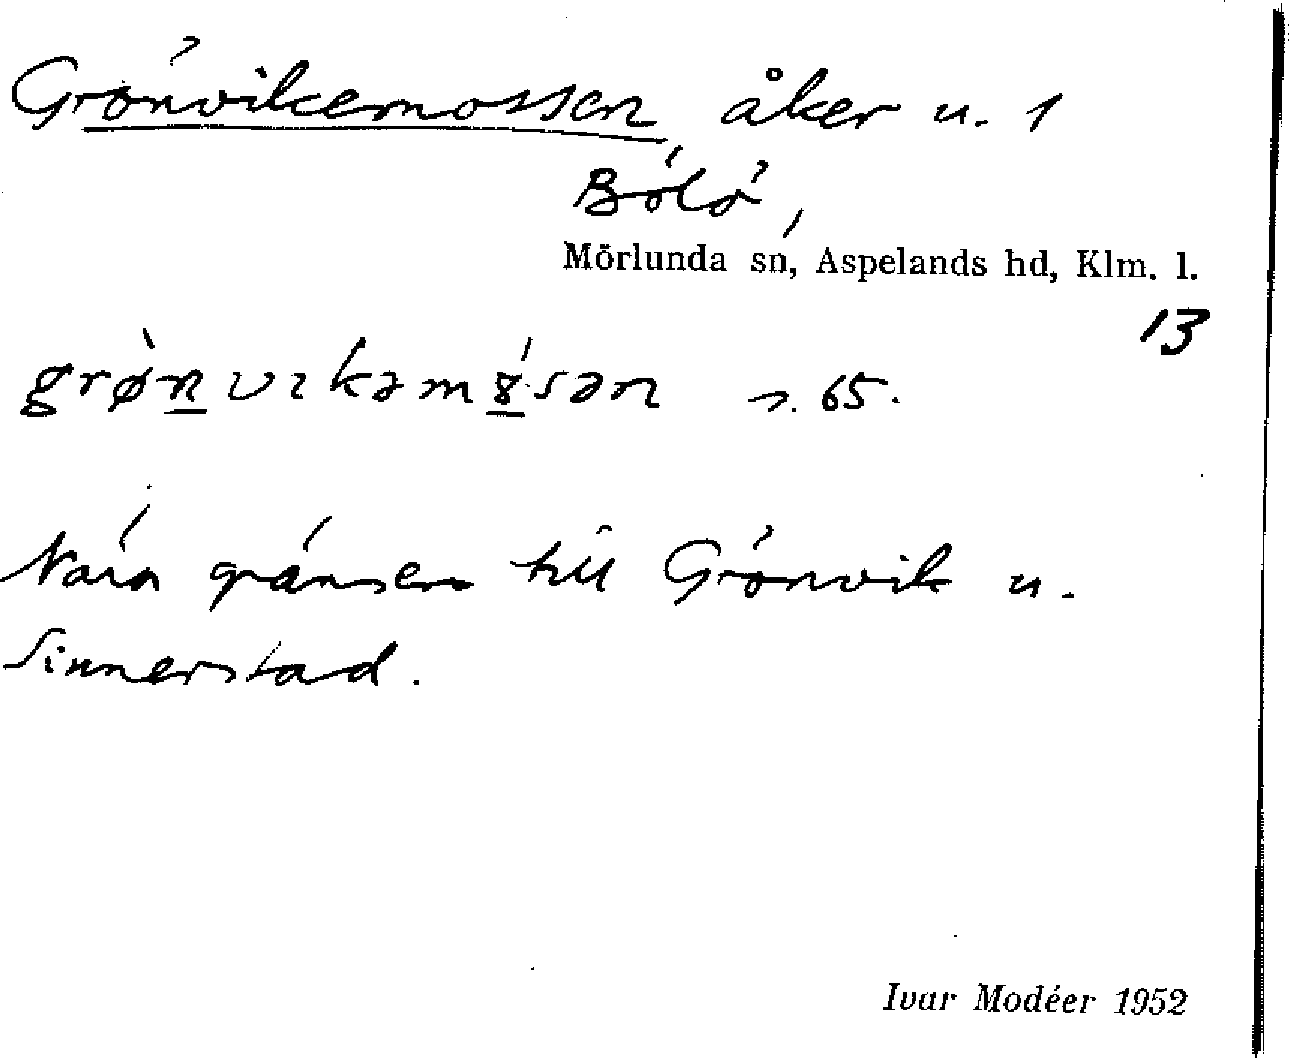 Grönvikemossen, åker u. 1
Bölö,
Mörlunda sn, Aspelands hd, Klm. l.
13
grø̀nvikəmɤ́sən s. 65.
Nära gränsen till Grönvik u.
Sinnerstad.
Ivar Modéer 1952